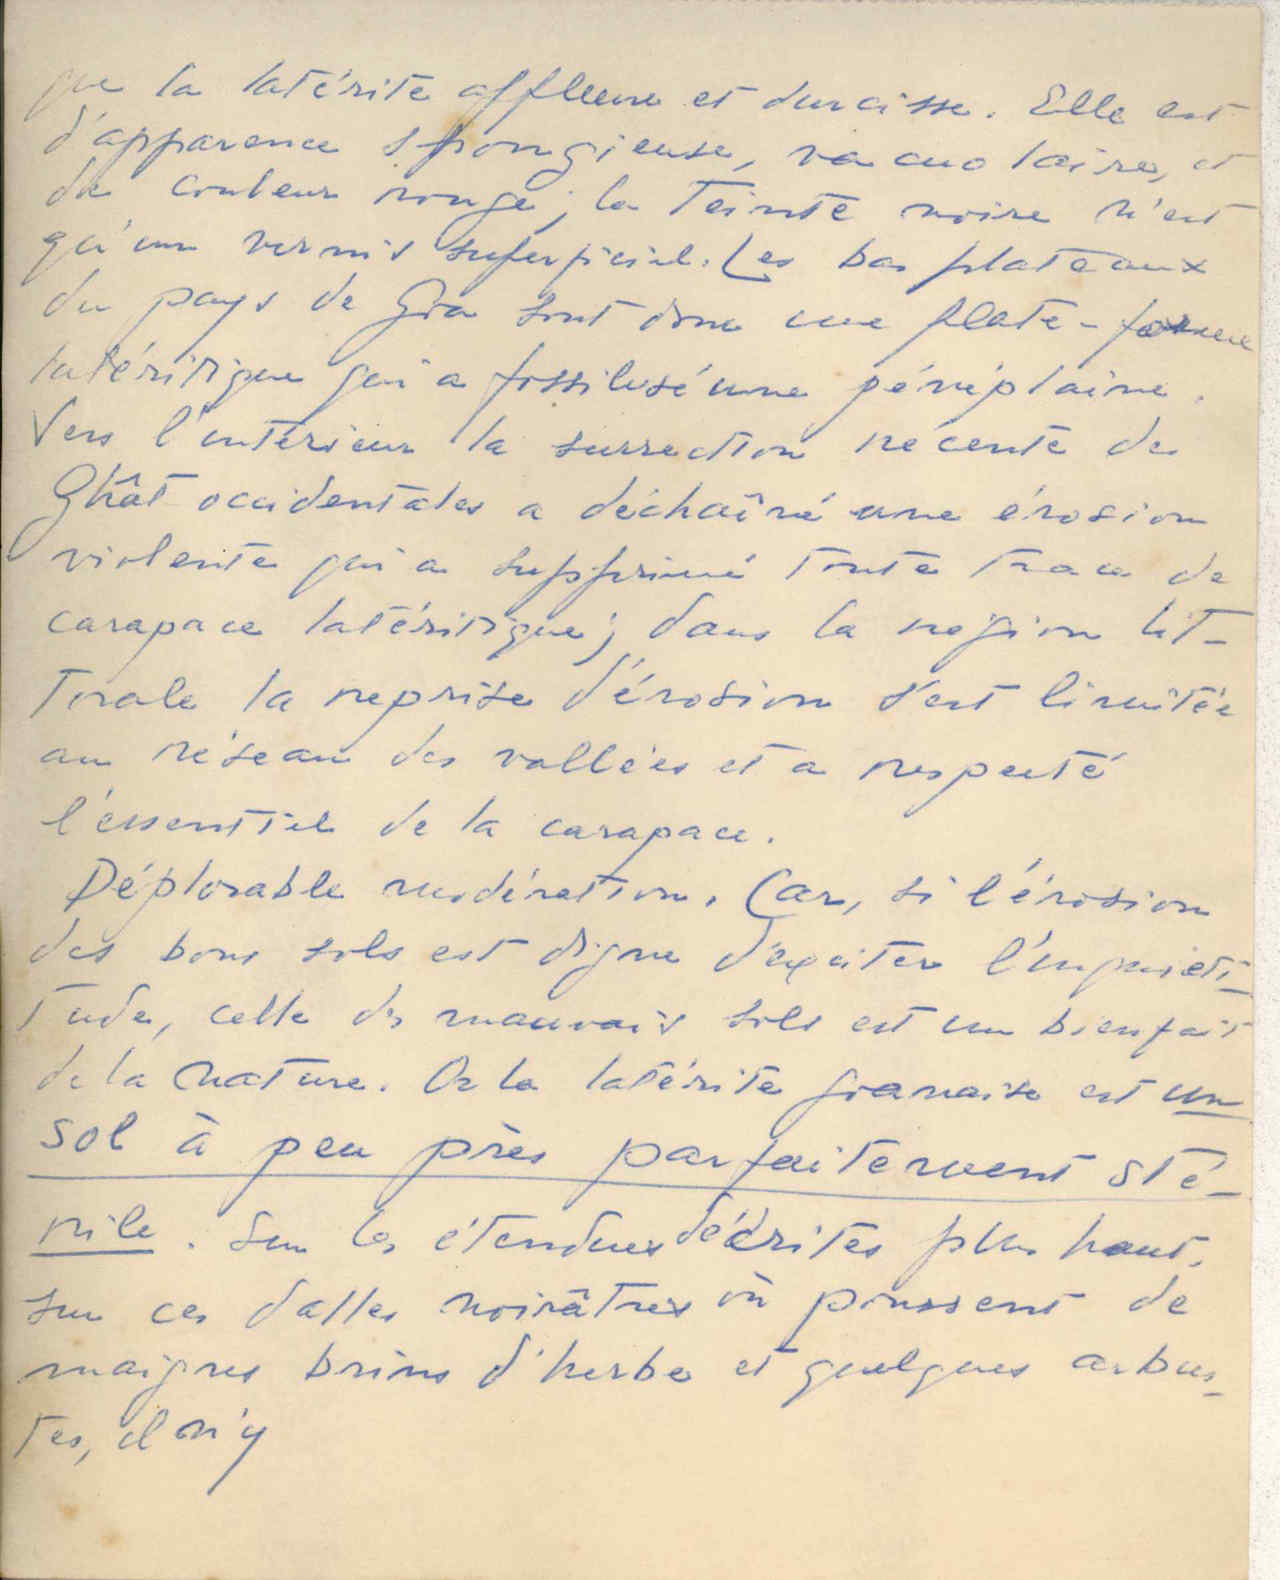 que la latérite affleure et durcisse. Elle est
d'apparence spongieuse, vacuolaire, et
de couleur rouge; la teinte noire n'est
qu'un vernis superficiel. Les bas plateaux
du pays de Goa sont donc une plate-forme
latéritique qui a fossilisé une pénéplaine.
Vers l'intérieur la surrection récente des
Ghât occidentales a déchaîné une érosion
violente qui a supprimé toute trace de
carapace latéritique; dans la région lit-
torale la reprise d'érosion s'est limitée
au réseau des vallées et a respecté
l'essentiel de la carapace.
Déplorable modération. Car, si l'érosion
des bons sols est digne d'exciter l'inquiéti-
tude, celle des mauvais sols est un bienfait
de la nature. Or la latérite goanaise est un
sol à peu près parfaitement sté-
rile. Sur les étendues décrites plus haut,
sur ces dalles noirâtres où poussent de
maigres brins d'herbe et quelques arbus-
tes, il n'y